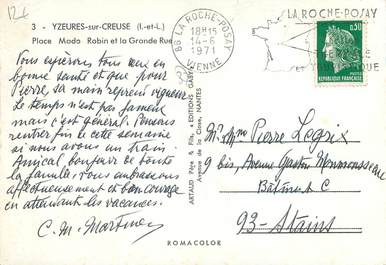 12€
3 - YZEURES-sur-CREUSE (I.-et-L.)
Place Mado Robin et la Grande Rue
Vous espérons tous deux en
bonne santé et que pour
Pierre, sa main reprend vigueur
Le temps n'est pas fameux
mais c'est général. Pensons
rentrer fin de cette semaine
si nous avons un train.
Amical bonjour de toute
la famille. Vous embrassons
affectueusement et bon courage
en attendant les vacances.
C. M. Martinez
ARTAUD Père & Fils, ÉDITIONS GABY
Avenue de la Close, NANTES
86 LA ROCHE-POSAY
18H15
14-6
1971
VIENNE
LA ROCHE-POSAY
0,30
REPUBLIQUE FRANCAISE
Mr Mme Pierre Legoix
9 bis, Avenue Gaston Monmousseau
Bâtiment C
93-Stains
ROMACOLOR